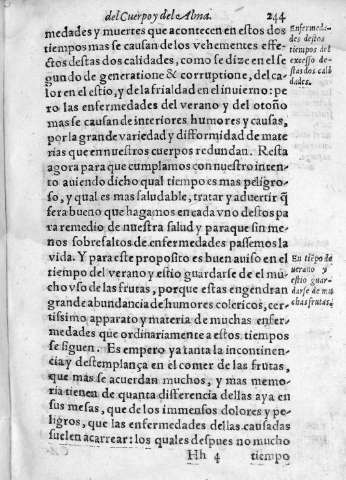 del Cuerpo y del Alma. 244
medades y muertes que acontecen en estos dos
tiempos mas se causan de los vehementes effe-
ctos destas dos calidades, como se dize en el se
gundo de generatione & corruptione, del ca-
lor en el estio, y de la frialdad en el inuierno: pe
ro las enfermedades del verano y del otoño
mas se causan de interiores humores y causas,
por la grande variedad y difformidad de mate
rias que en nuestros cuerpos redundan. Resta
agora para que cumplamos con nuestro inten-
to auiendo dicho qual tiempo es mas peligro-
so, y qual es mas saludable, tratar y aduertir q̃
sera bueno que hagamos en cada vno destos pa
ra remedio de nuestra salud y para que sin me-
nos sobresaltos de enfermedades passemos la
vida. Y para este proposito es buen auiso en el
tiempo del verano y estio guardarse de el mu-
cho vso de las frutas, porque estas engendran
grande abundancia de humores colericos, cer-
tissimo apparato y materia de muchas enfer-
medades que ordinariamente a estos tiempos
se siguen. Es empero ya tanta la incontinen-
cia y destemplança en el comer de las frutas,
que mas se acuerdan muchos, y mas memo-
ria tienen de quanta differencia dellas aya en
sus mesas, que de los immensos dolores y pe-
ligros, que las enfermedades dellas causadas
suelen acarrear: los quales despues no mucho
Hh 4 tiempo
Enfermeda-
des destos
tiempos del
excesso de-
stas dos cali
dades.
En tiẽpo de
verano y
estio guar-
darse de mu
chas frutas.